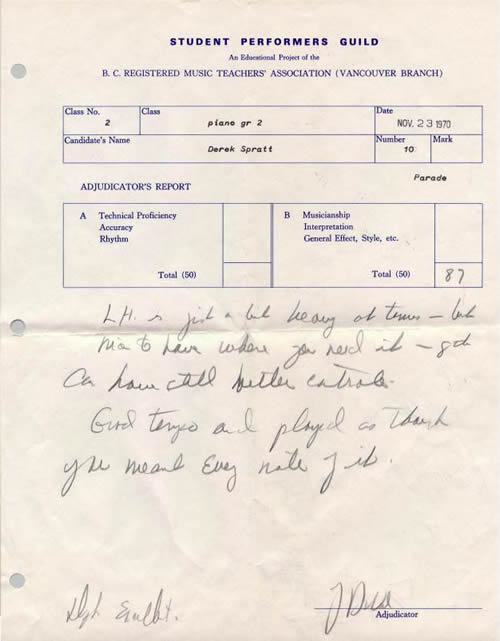 STUDENT PERFORMERS GUILD
An Educational Project of the
B. C. REGISTERED MUSIC TEACHERS' ASSOCIATION (VANCOUVER BRANCH)
Class No. 2 Class piano gr 2 Date NOV. 23 1970
Candidate's Name Derek Spratt Number 10 Mark
Parade
ADJUDICATOR'S REPORT
A Technical Proficiency
Accuracy
Rhythm
Total (50)
B Musicianship
Interpretation
General Effect, Style, etc.
Total (50) 87
L.H. is just a bit heavy at times – but
nice to have where you need it –
Can have still better control.
Good tempo and played as though
you meant every note of it.
Adjudicator